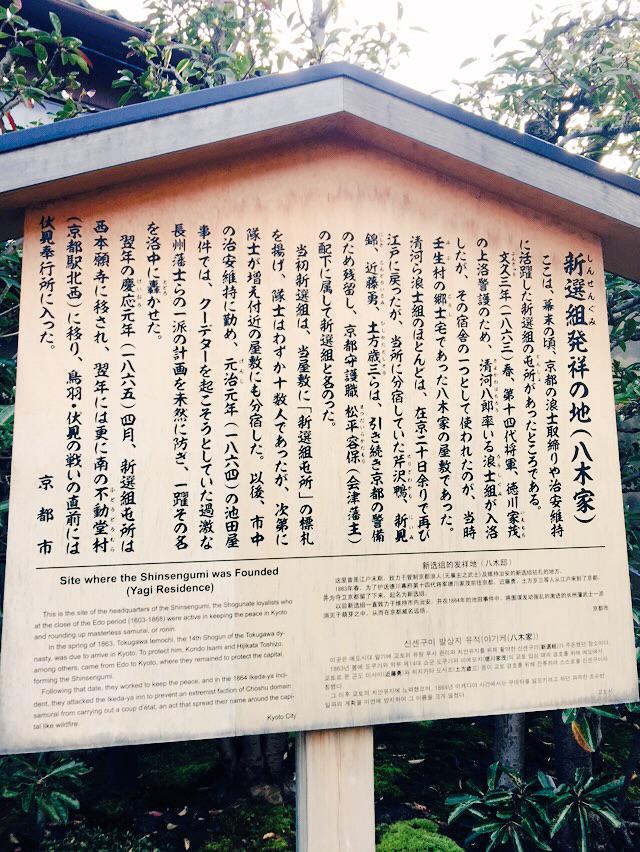 新選組発祥の地(八木家)
しんせんぐみ
ここは、幕末の頃、京都の浪士取締りや治安維持
に活躍した新選組の屯所があったところである。
文久三年(一八六三)春、第十四代将軍、徳川家茂
の上洛警護のため、清河八郎率いる浪士組が入洛
したが、その宿舎の一つとして使われたのが、当時
壬生村の郷士宅であった八木家の屋敷であった。
清河ら浪士組のほとんどは、在京二十日余りで再び
江戸に戻ったが、当所に分宿していた芹沢鴨、新見
錦、近藤勇、土方歳三らは、引き続き京都の警備
のため残留し、京都守護職 松平容保(会津藩主)
の配下に属して新選組と名のった。
当初新選組は、当屋敷に「新選組屯所」の標札
を揚げ、隊士はわずか十数人であったが、次第に
隊士が増え付近の屋敷にも分宿した。以後、市中
の治安維持に勤め、元治元年(一八六四)の池田屋
事件では、クーデターを起こそうとしていた過激な
長州藩士らの一派の計画を未然に防ぎ、一躍その名
を洛中に轟かせた。
翌年の慶応元年(一八六五)四月、新選組屯所は
西本願寺に移され、翌年には更に南の不動堂村
(京都駅北西)に移り、鳥羽・伏見の戦いの直前には
伏見奉行所に入った。
京都市
Site where the Shinsengumi was Founded
(Yagi Residence)
This is the site of the headquarters of the Shinsengumi, the Shogunate loyalists who
at the close of the Edo period (1603-1868) were active in keeping the peace in Kyoto
and rounding up masterless samurai, or ronin.
In the spring of 1863, Tokugawa Iemochi, the 14th Shogun of the Tokugawa dy-
nasty, was due to arrive in Kyoto. To protect him, Kondo Isami and Hijikata Toshizo,
among others, came from Edo to Kyoto, where they remained to protect the capital,
forming the Shinsengumi.
Following that date, they worked to keep the peace, and in the 1864 Ikeda-ya inci-
dent, they attacked the Ikeda-ya inn to prevent an extremist faction of Choshu domain
samurai from carrying out a coup d'état, an act that spread their name around the capi-
tal like wildfire.
Kyoto City
新选组的发祥地(八木邸)
京都市
신센구미 발상지 유적(야기케(八木家))
교토시